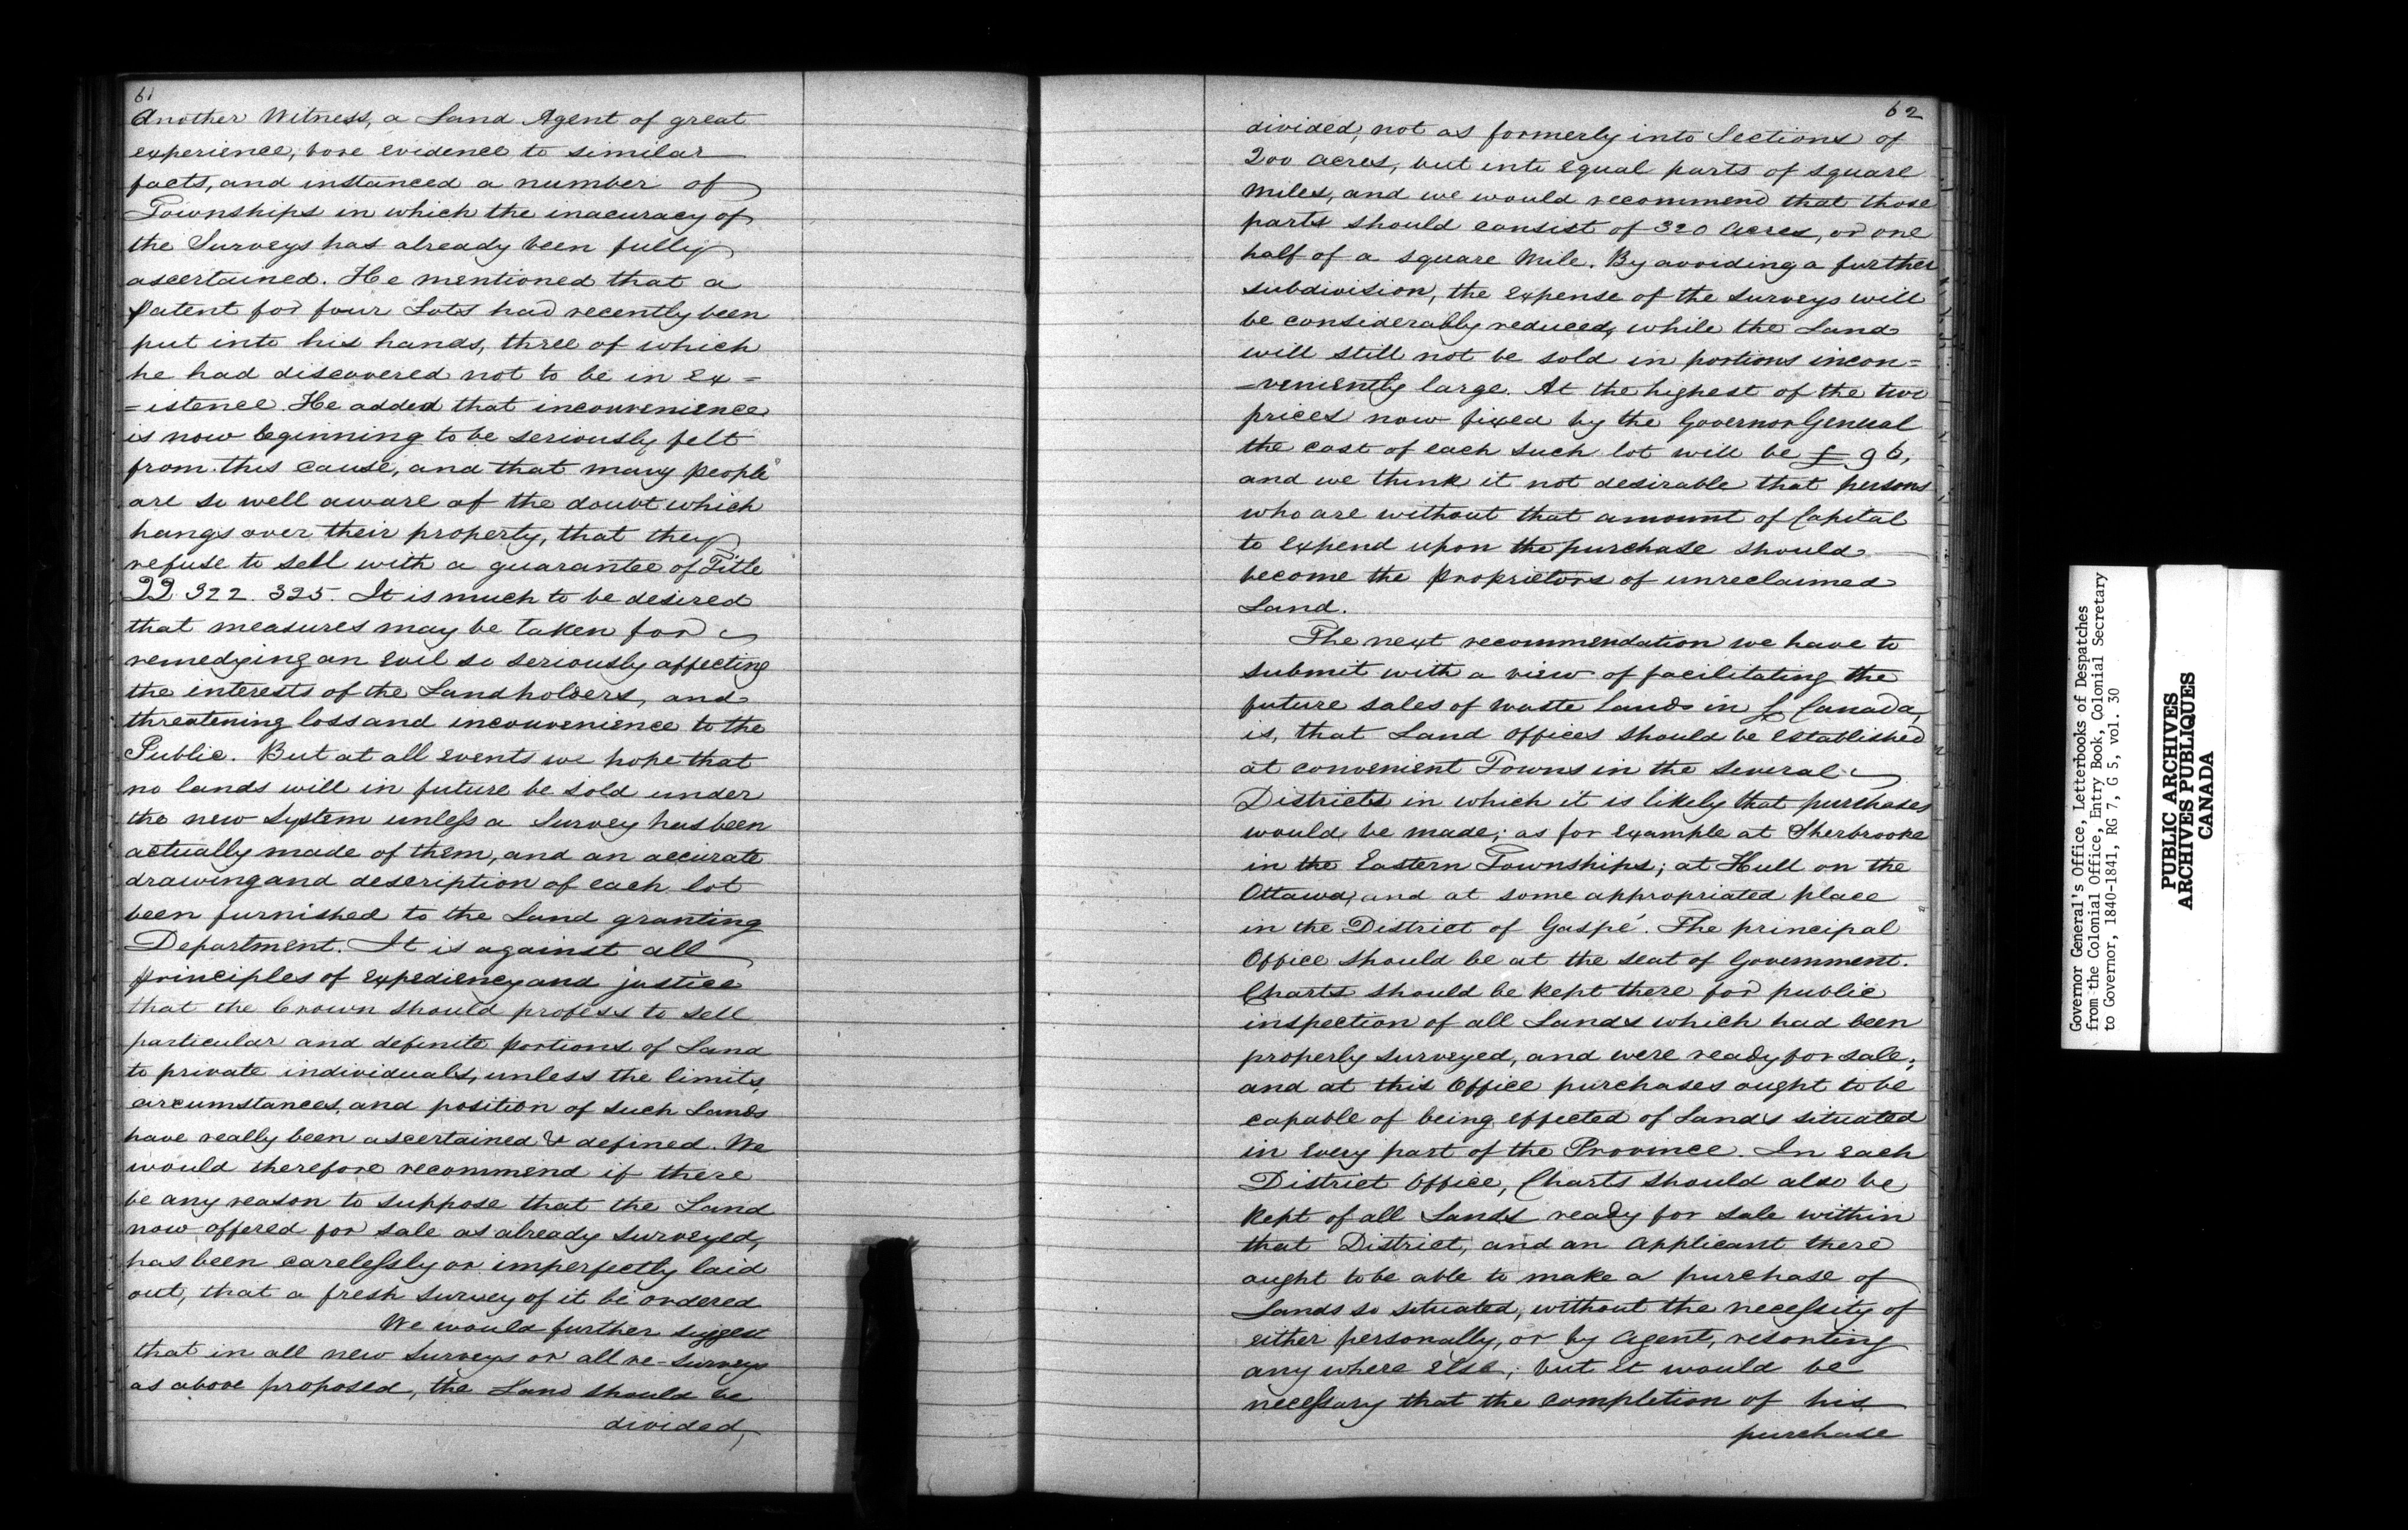 61
Another Witness, a Land Agent of great
experience, bore evidence to similar
facts, and instanced a number of
Townships in which the inacuracy of
the Surveys has already been fully
ascertained. He mentioned that a
Patent for four Lots had recently been
put into his hands, three of which
he had discovered not to be in ex=
=istence. He added that inconvenience
is now beginning to be seriously felt
from this cause, and that many people
are so well aware of the doubt which
hangs over their property, that they
refuse to sell with a guarantee of Title
QQ 322. 325. It is much to be desired
that measures may be taken for
remedying an evil so seriously affecting
the interests of the Landholders, and
threatening loss and inconvenience to the
Public. But at all events we hope that
no lands will in future be sold under
the new System unless a Survey has been
actually made of them, and an accurate
drawing and description of each lot
been furnished to the Land granting
Department. It is against all
principles of expediency and justice
that the Crown should profess to sell
particular and definite portions of Land
to private individuals, unless the limits,
circumstances, and position of such Lands
have really been ascertained & defined. We
would therefore recommend if there
be any reason to suppose that the Land
now offered for sale as already surveyed,
has been carelessly or imperfectly laid
out, that a fresh survey of it be ordered
We would further suggest
that in all new Surveys or all re-surveys
as above proposed, the Land should be
divided,
62
divided, not as formerly into Sections of
200 acres, but into equal parts of square
miles, and we would recommend that those
parts should consist of 320 acres, or one
half of a square Mile. By avoiding a further
subdivision, the expense of the surveys will
be considerably reduced, while the Land
will still not be sold in portions incon=
=veniently large. At the highest of the two
prices now fixed by the Governor General
the cost of each such lot will be £96,
and we think it not desirable that persons
who are without that amount of Capital
to expend upon the purchase should
become the proprietors of unreclaimed
Land.
The next recommendation we have to
submit with a view of facilitating the
future sales of waste Lands in L Canada,
is, that Land Offices should be established
at convenient Towns in the several
Districts in which it is likely that purchases
would be made; as for example at Sherbrooke
in the Eastern Townships; at Hull on the
Ottawa; and at some appropriated place
in the District of Gaspé. The principal
Office should be at the seat of Government.
Charts should be kept there for public
inspection of all Lands which had been
properly surveyed, and were ready for sale;
and at this Office purchases ought to be
capable of being effected of Lands situated
in every part of the Province. In each
District Office, Charts should also be
kept of all Lands ready for sale within
that District, and an Applicant there
ought to be able to make a purchase of
Lands so situated, without the necessity of
either personally, or by Agent, resorting
any where else; but it would be
necessary that the completion of his
purchase
Governor General's Office, Letterbooks of Despatches
from the Colonial Office, Entry Book, Colonial Secretary
to Governor, 1840-1841, RG 7, G 5, vol. 30
PUBLIC ARCHIVES
ARCHIVES PUBLIQUES
CANADA